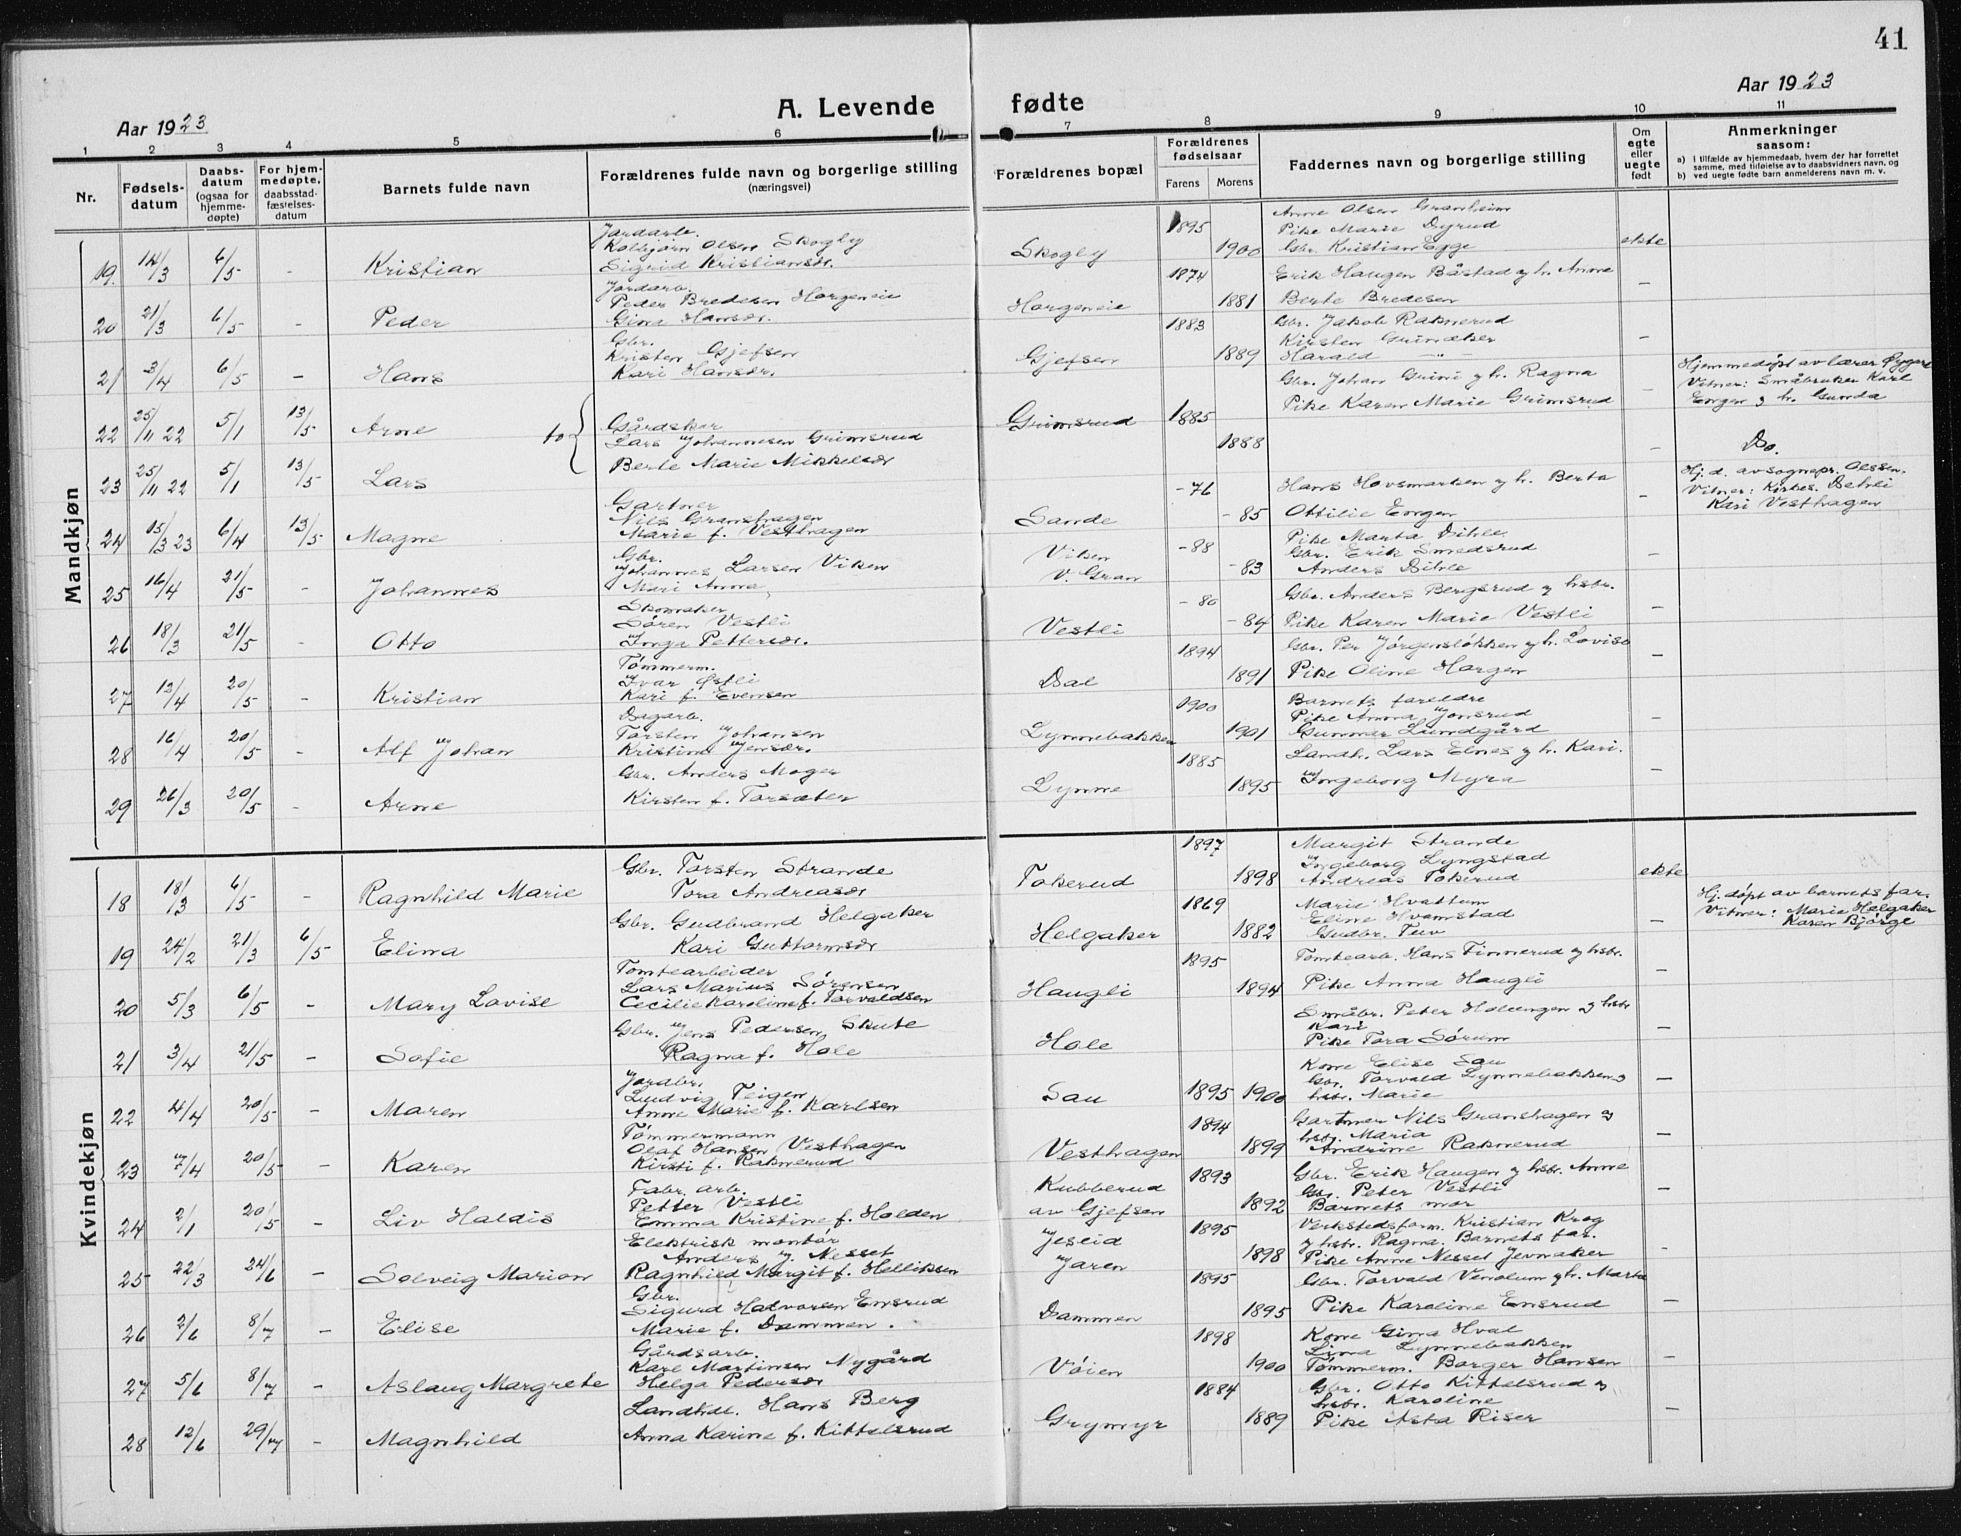 41
Aar 1923
A. Levende fødte
Aar 1923
1 2 3 4 5 6 7 8 9 10 11
Nr.
Fødsels-
datum
Daabs-
datum
(ogsaa for
hjemme-
døpte)
For hjem-
medøpte,
daabsstad-
fæstelses-
datum
Barnets fulde navn
Forældrenes fulde navn og borgerlige stilling
(næringsvei)
Forældrenes bopæl
Forældrenes
fødselsaar
Farens Morens
Faddernes navn og borgerlige stilling
Om
egte
eller
uegte
født
Anmerkninger
saasom:
a) i tilfælde av hjemmedaab, hvem der har forrettet
samme, med tilføielse av to daabsvidners navn, og
b) ved uegte fødte barn anmelderens navn m. v.
Mandkjøn
19. 14/3 6/5 - Kristian
Jordarb.
Kolbjørn Olsen Skogly
Sigrid Kristiansdr.
Skogly 1895 1900
Anne Olsen Granheim
Pike Marie Dyrud
Gbr. Kristian Egge
ekte
20 21/3 6/5 - Peder
Jordarb.
Peder Bredesen Horgeneie
Gina Hansdr.
Horgeneie 1874 1881
Erik Haugen Båstad og h. Anne
Berte Bredesen
-
21 3/4 6/5 - Hans
Gbr.
Kristen Gjefsen
Kari Hansdr.
Gjefsen 1883 1889
Gbr. Jakob Raknerud
Kirsten Grinaker
Harald -"-
-
22 25/11 22 5/1 13/5 Arne
to {
Gårdskar
Lars Johannesen Grimsrud
Berte Marie Mikkelsdr
Grimsrud 1885 1888
Gbr. Johan Grini og h. Ragna
Pike Karen Marie Grimsrud
-
Hjemmedøpt av lærer Øygard
Vitner: Småbruker Karl
Engen og h. Gunda
23 25/11 22 5/1 13/5 Lars
-
Do.
24 15/3 23 6/4 13/5 Magne
Gartner
Nils Granshagen
Marie f. Vesthagen
Sande -76 -85
Hans Hovsmarken og h. Berta
Ottilie Engen
-
Hj. d. av sognepr. Olssen.
Vitner: Kirkes. Dehli
Kari Vesthagen
25 16/4 21/5 - Johannes
Gbr.
Johannes Larsen Viken
Mari Anna
Viken
v. Gran
-88 -83
Pike Marta Dihle
Gbr. Erik Smedsrud
Anders Dihle
-
26 18/3 21/5 - Otto
Skomaker
Søren Vestli
Inga Pettersdr.
Vestli -80 -84
Gbr. Anders Bergsrud og hstr.
Pike Karen Marie Vestli
-
27 13/4 20/5 - Kristian
Tømmerm.
Ivar Østli
Kari f. Evensen
Dal 1894 1891
Gbr. Per Jørgensløkken og h. Lovise
Pike Oline Horgen
-
28 16/4 20/5 - Alf Johan
Dagarb.
Torsten Johansen
Kristine Jensdr.
Lynnebakken 1900 1901
Barnets foreldre
Pike Anna Jonsrud
Gunnar Lundgård
-
29 26/3 20/5 - Arne
Gbr. Anders Moger
Kirsten f. Torsæter
Lynne 1885 1895
Landh. Lars Elnes og h. Kari.
Ingeborg Myra
-
Kvindekjøn
18 18/3 6/5 - Ragnhild Marie
Gbr. Torsten Strande
Tora Andreasdr
Tokerud 1897 1898
Margit Strande
Ingeborg Lyngstad
Andreas Tokerud
ekte
19 24/2 21/3 6/5 Elina
Gbr. Gudbrand Helgaker
Kari Guttormsdr
Helgaker 1869 1882
Marie Hvattum
Eline Hvamstad
Gudbr. Tuv
-
Hj. døpt av barnets far.
Vitner: Marie Helgaker
Karen Bjørge
20 5/3 6/5 - Mary Lovise
Tomtearbeider
Lars Marius Sørensen
Cecilie Karoline f. Torvaldsen
Haugli 1895 1894
Tomtearb. Hans Finnerud og hstr.
Pike Anna Haugli
-
21 3/4 21/5 - Sofie
Gbr. Jens Pedersen Skute
Ragna f. Hole
Hole
Småbr. Peter Holengen og hstr
Kari
Pike Tora Sørum
-
22 4/4 20/5 - Maren
Jordbr.
Ludvig Teigen
Anne Marie f. Karlsen
Sau 1895 1900
Kone Elise Sau
Gbr. Torvald Lynnebakken og
hstr. Marie
-
23 7/4 20/5 - Karen
Tømmermann
Olaf Hansen Vesthagen
Kirsti f. Raknerud
Vesthagen 1894 1899
Gartner Nils Granshagen og
hstr. Maria
Andrine Raknerud
-
24 2/1 20/5 - Liv Haldis
Fabr. arb.
Petter Vestli
Emma Kristine f. Holden
Kubberud
av Gjefsen
1893 1892
Gbr. Erik Haugen og hstr. Anne
Gbr. Peter Vestli
Barnets mor
-
25 22/3 24/6 - Solveig Marion
Elektrisk montør
Anders J. Nesset
Ragnhild Margit f. Helliksen
Jeseid
Jaren
1895 1898
Verkstedsform. Kristian Krog
og hstr. Ragna. Barnets far.
Pike Anne Nesset Jevnaker
-
26 2/6 8/7 - Elise
Gbr.
Sigurd Halvorsen Ensrud
Marie f. Dammen.
Dammen 1895 1895
Gbr. Torvald Venolum og h. Marta
Pike Karoline Ensrud
-
27 5/6 8/7 - Aslaug Margrete
Gårdsarb.
Karl Martinsen Nygård
Helga Pedersdr
Vøien 1898 1900
Kone Gina Hval
Lina Lynnebakken
Tømmerm. Borger Hansen
-
28 12/6 29/7 - Magnhild
Landhdl. Hans Berg
Anna Karine f. Kittelsrud
Grymyr 1884 1889
Gbr. Otto Kittelsrud og
hstr. Karoline
Pike Asta Riser
-